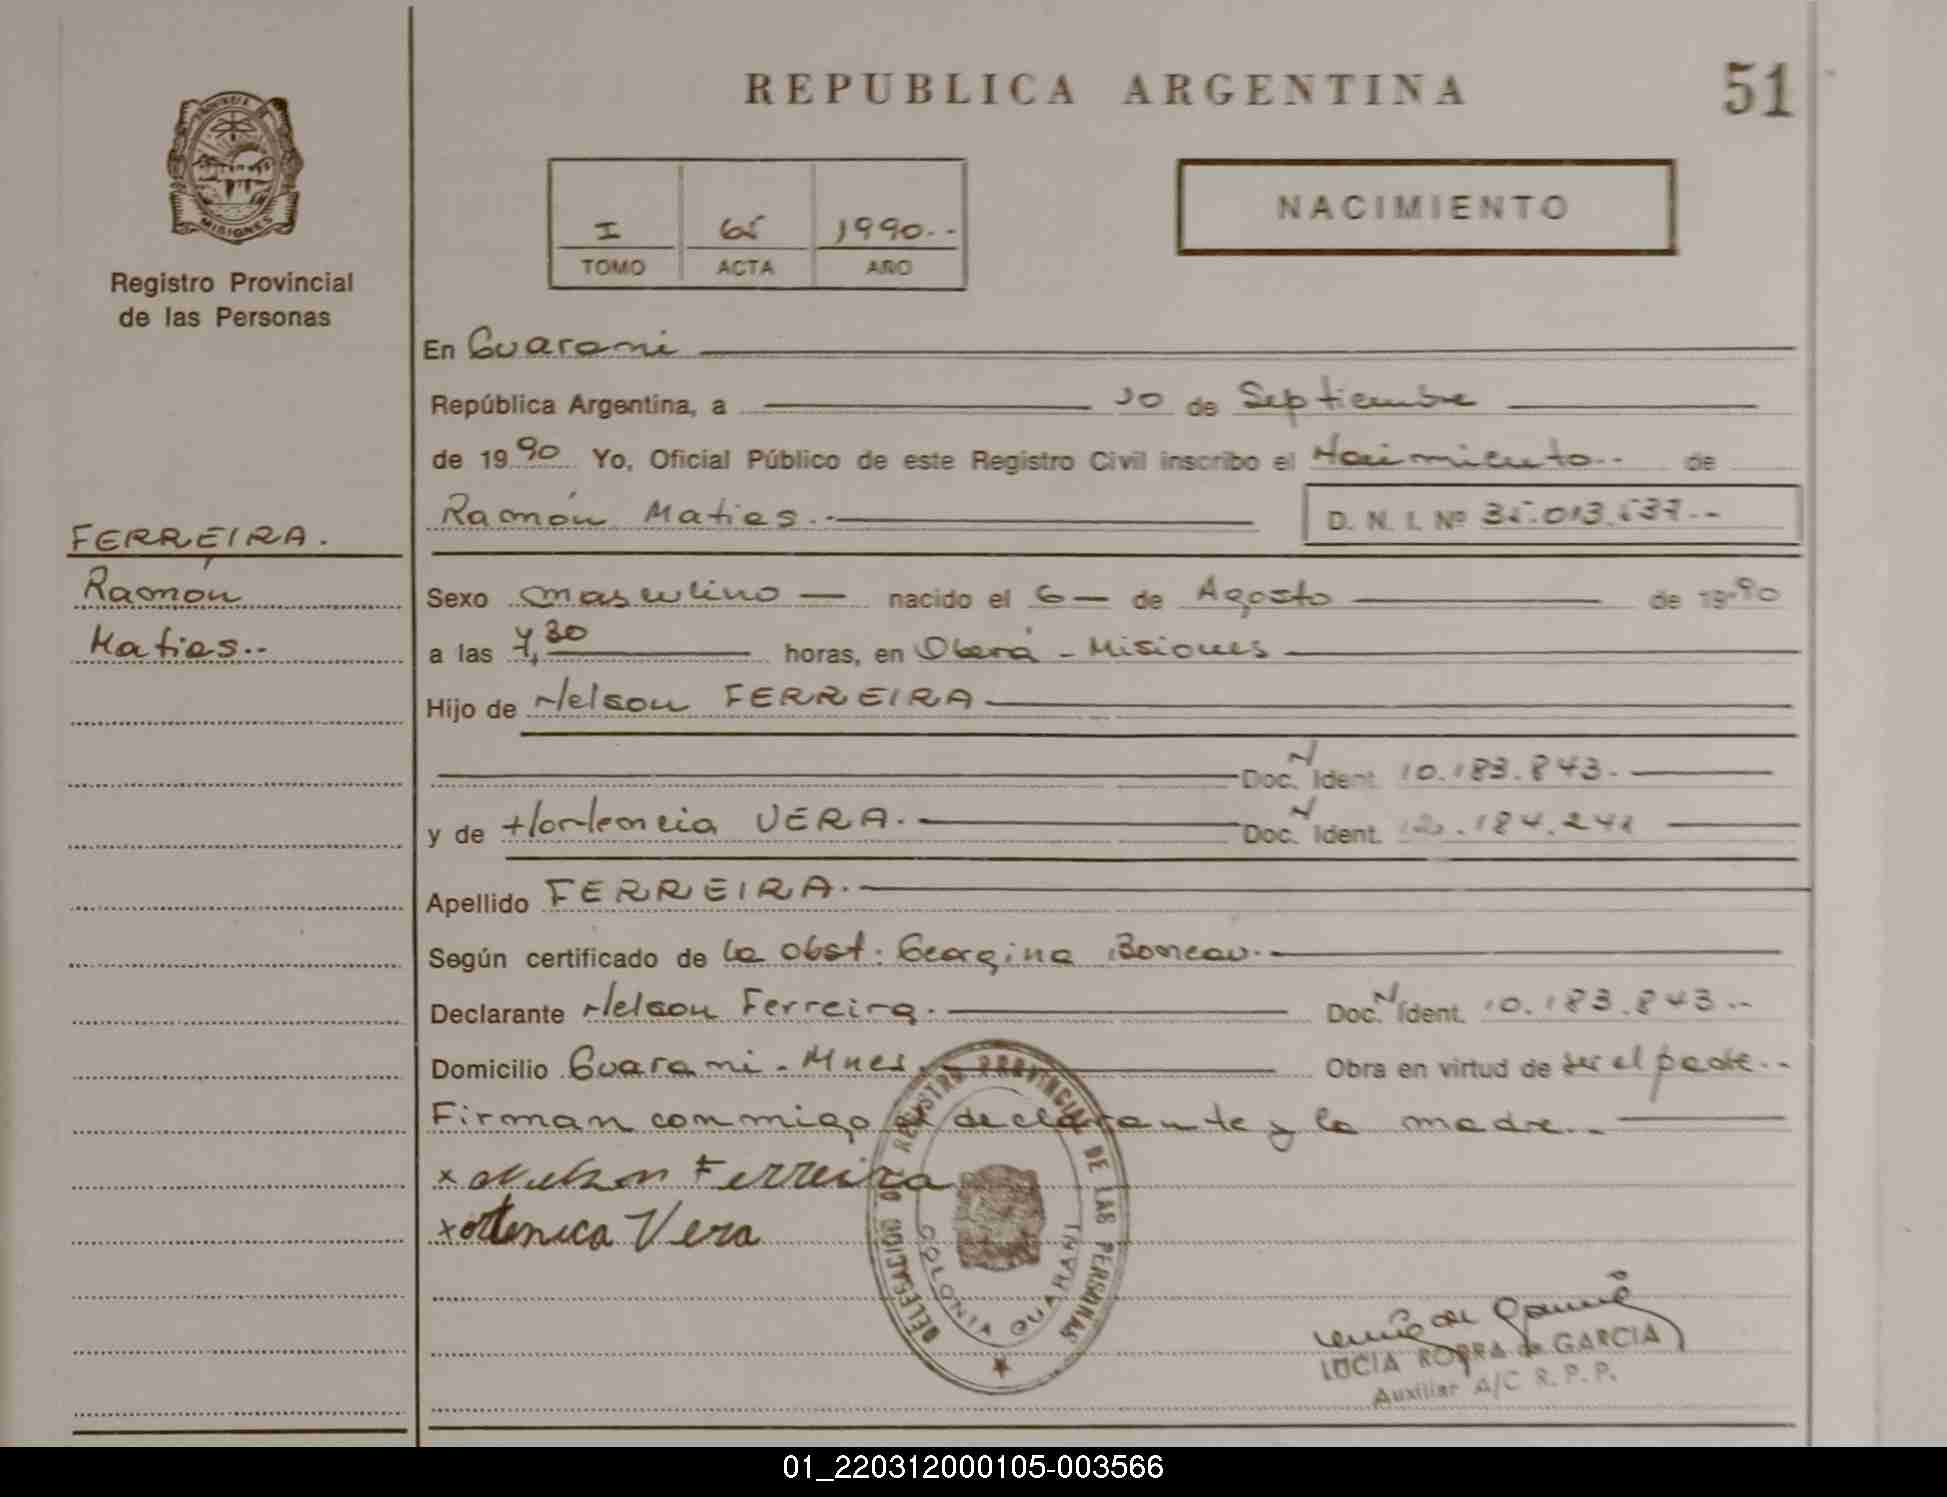 REPUBLICA ARGENTINA
51
PROVINCIA DE
MISIONES
Registro Provincial
de las Personas
I 65 1990.--
TOMO ACTA AÑO
NACIMIENTO
En Guarani
República Argentina, a 10 de Septiembre
de 1990 Yo, Oficial Público de este Registro Civil inscribo el Nacimiento.. de
Ramón Matias.-
D. N. I. Nº
FERREIRA.
Ramón
Matias.-
Sexo masculino nacido el 6 de Agosto de 1990
a las 7,30 horas, en Oberá - Misiones
Hijo de Nelson FERREIRA
Doc. Ident. N 10.183.843.
y de Hortencia VERA. Doc. Ident. N
Apellido FERREIRA.
Según certificado de la obst: Georgina
Declarante Nelson Ferreira. Doc. Ident. N 10.183.843.--
Domicilio Guarani - Mnes. Obra en virtud de ser el padre.--
Firman conmigo el declarante y la madre..
x Nelson Ferreira
x ortenica Vera
DELEGACION REGISTRO PROVINCIAL DE LAS PERSONAS
COLONIA GUARANI
LUCIA de GARCIA
Auxiliar A/C R. P. P.
01_220312000105-003566